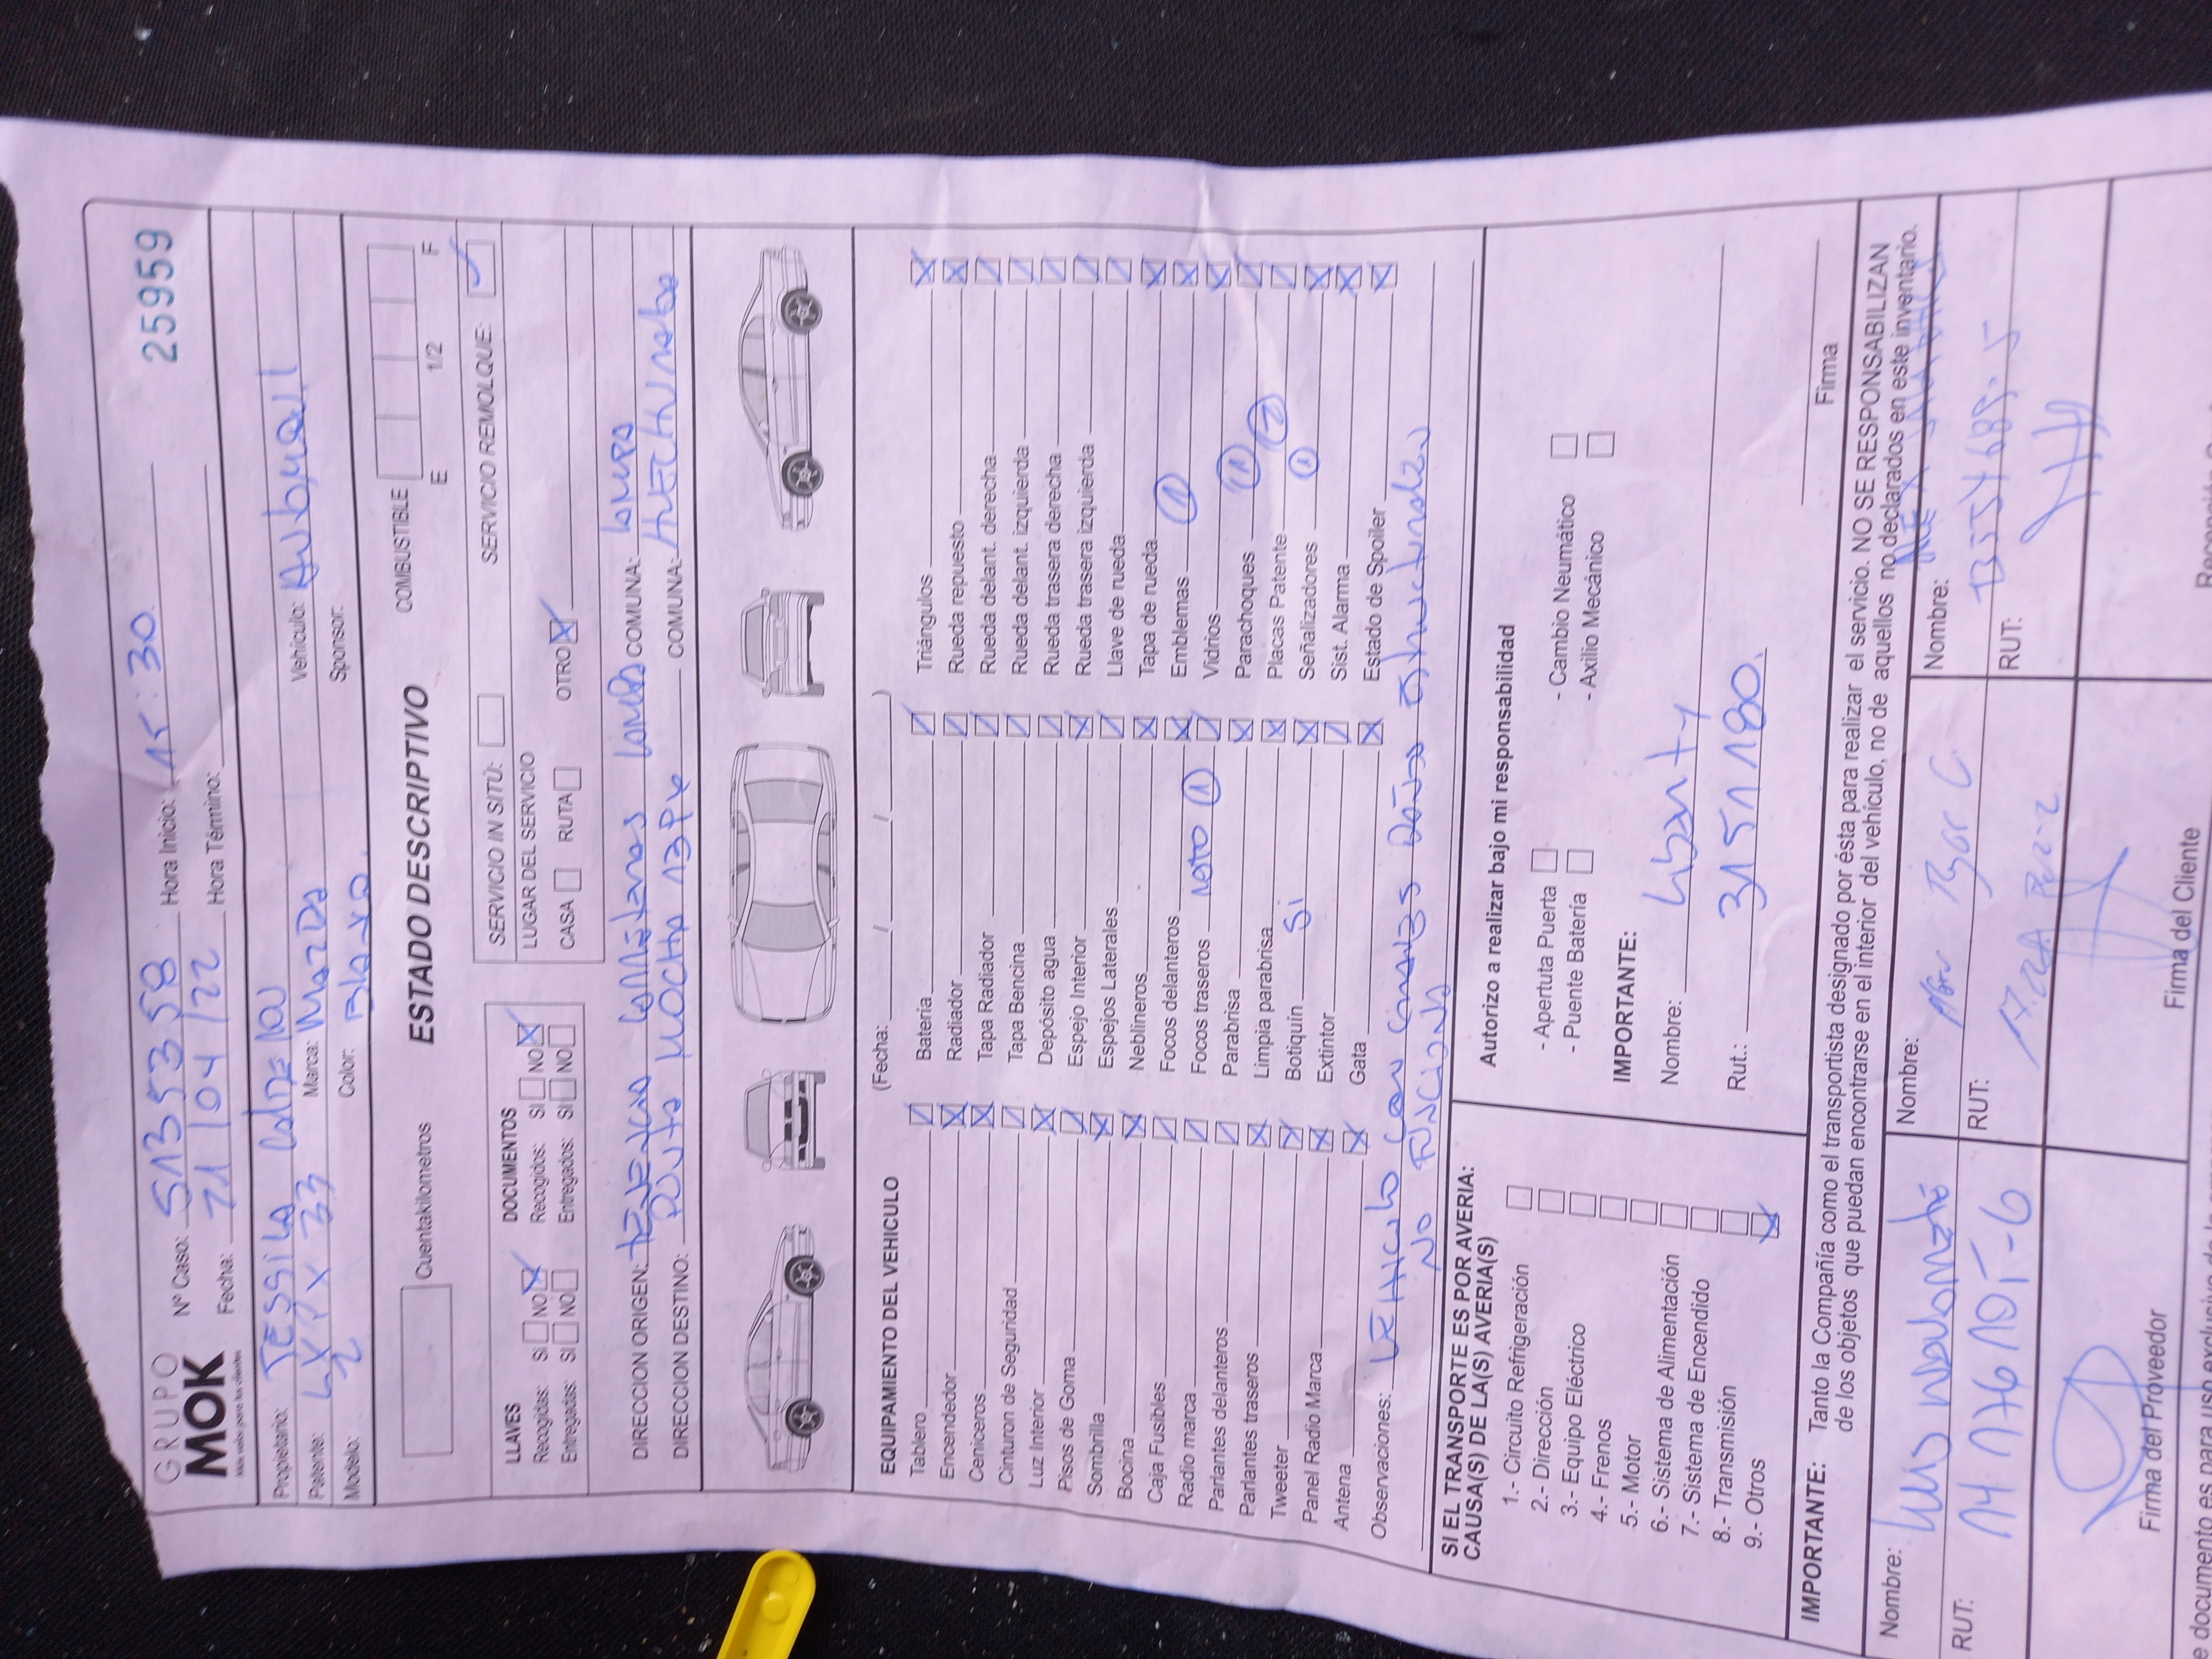 GRUPO
MOK
Más valor para tus clientes
Nº Caso: 5135358 Hora Inicio: 15:30 25959
Fecha: 21/04/22 Hora Término:
Propietario: JESSICA
Patente: Marca: Mazda Vehículo: Automovil
Modelo: 2 Color: Sponsor:
Cuentakilometros ESTADO DESCRIPTIVO COMBUSTIBLE
E 1/2 F
LLAVES
Recogidas: SI NO X
Entregadas: SI NO
DOCUMENTOS
Recogidos: SI NO X
Entregados: SI NO
SERVICIO IN SITÚ: SERVICIO REMOLQUE: ✓
LUGAR DEL SERVICIO
CASA RUTA OTRO X
DIRECCION ORIGEN: COMUNA: Lampa
DIRECCION DESTINO: COMUNA: HUECHURABA
EQUIPAMIENTO DEL VEHICULO (Fecha: / / )
Tablero /
Encendedor X
Ceniceros X
Cinturon de Seguridad /
Luz Interior X
Pisos de Goma /
Sombrilla X
Bocina X
Caja Fusibles /
Radio marca /
Parlantes delanteros /
Parlantes traseros X
Tweeter X
Panel Radio Marca X
Antena X
Batería /
Radiador /
Tapa Radiador /
Tapa Bencina /
Depósito agua /
Espejo Interior X
Espejos Laterales /
Neblineros X
Focos delanteros X
Focos traseros roto 1 /
Parabrisa X
Limpia parabrisa X
Botiquín Si X
Extintor /
Gata X
Triángulos X
Rueda repuesto X
Rueda delant. derecha /
Rueda delant. izquierda /
Rueda trasera derecha /
Rueda trasera izquierda /
Llave de rueda /
Tapa de rueda X
Emblemas 1 X
Vidrios X
Parachoques 1 /
Placas Patente 2 /
Señalizadores 1 X
Sist. Alarma X
Estado de Spoiler X
Observaciones: VEHICULO CON GRANDES DAÑOS estructurales
NO FUNCIONA
SI EL TRANSPORTE ES POR AVERIA:
CAUSA(S) DE LA(S) AVERIA(S)
1.- Circuito Refrigeración
2.- Dirección
3.- Equipo Eléctrico
4.- Frenos
5.- Motor
6.- Sistema de Alimentación
7.- Sistema de Encendido
8.- Transmisión
9.- Otros X
Autorizo a realizar bajo mi responsabilidad
- Apertuta Puerta - Cambio Neumático
- Puente Batería - Axilio Mecánico
IMPORTANTE:
Nombre: Liberty
Rut.: 3151180.
Firma
IMPORTANTE: Tanto la Compañía como el transportista designado por ésta para realizar el servicio. NO SE RESPONSABILIZAN
de los objetos que puedan encontrarse en el interior del vehículo, no de aquellos no declarados en este inventario.
Nombre: Luis
RUT:
Firma del Proveedor
Nombre:
RUT:
Firma del Cliente
Nombre:
RUT: